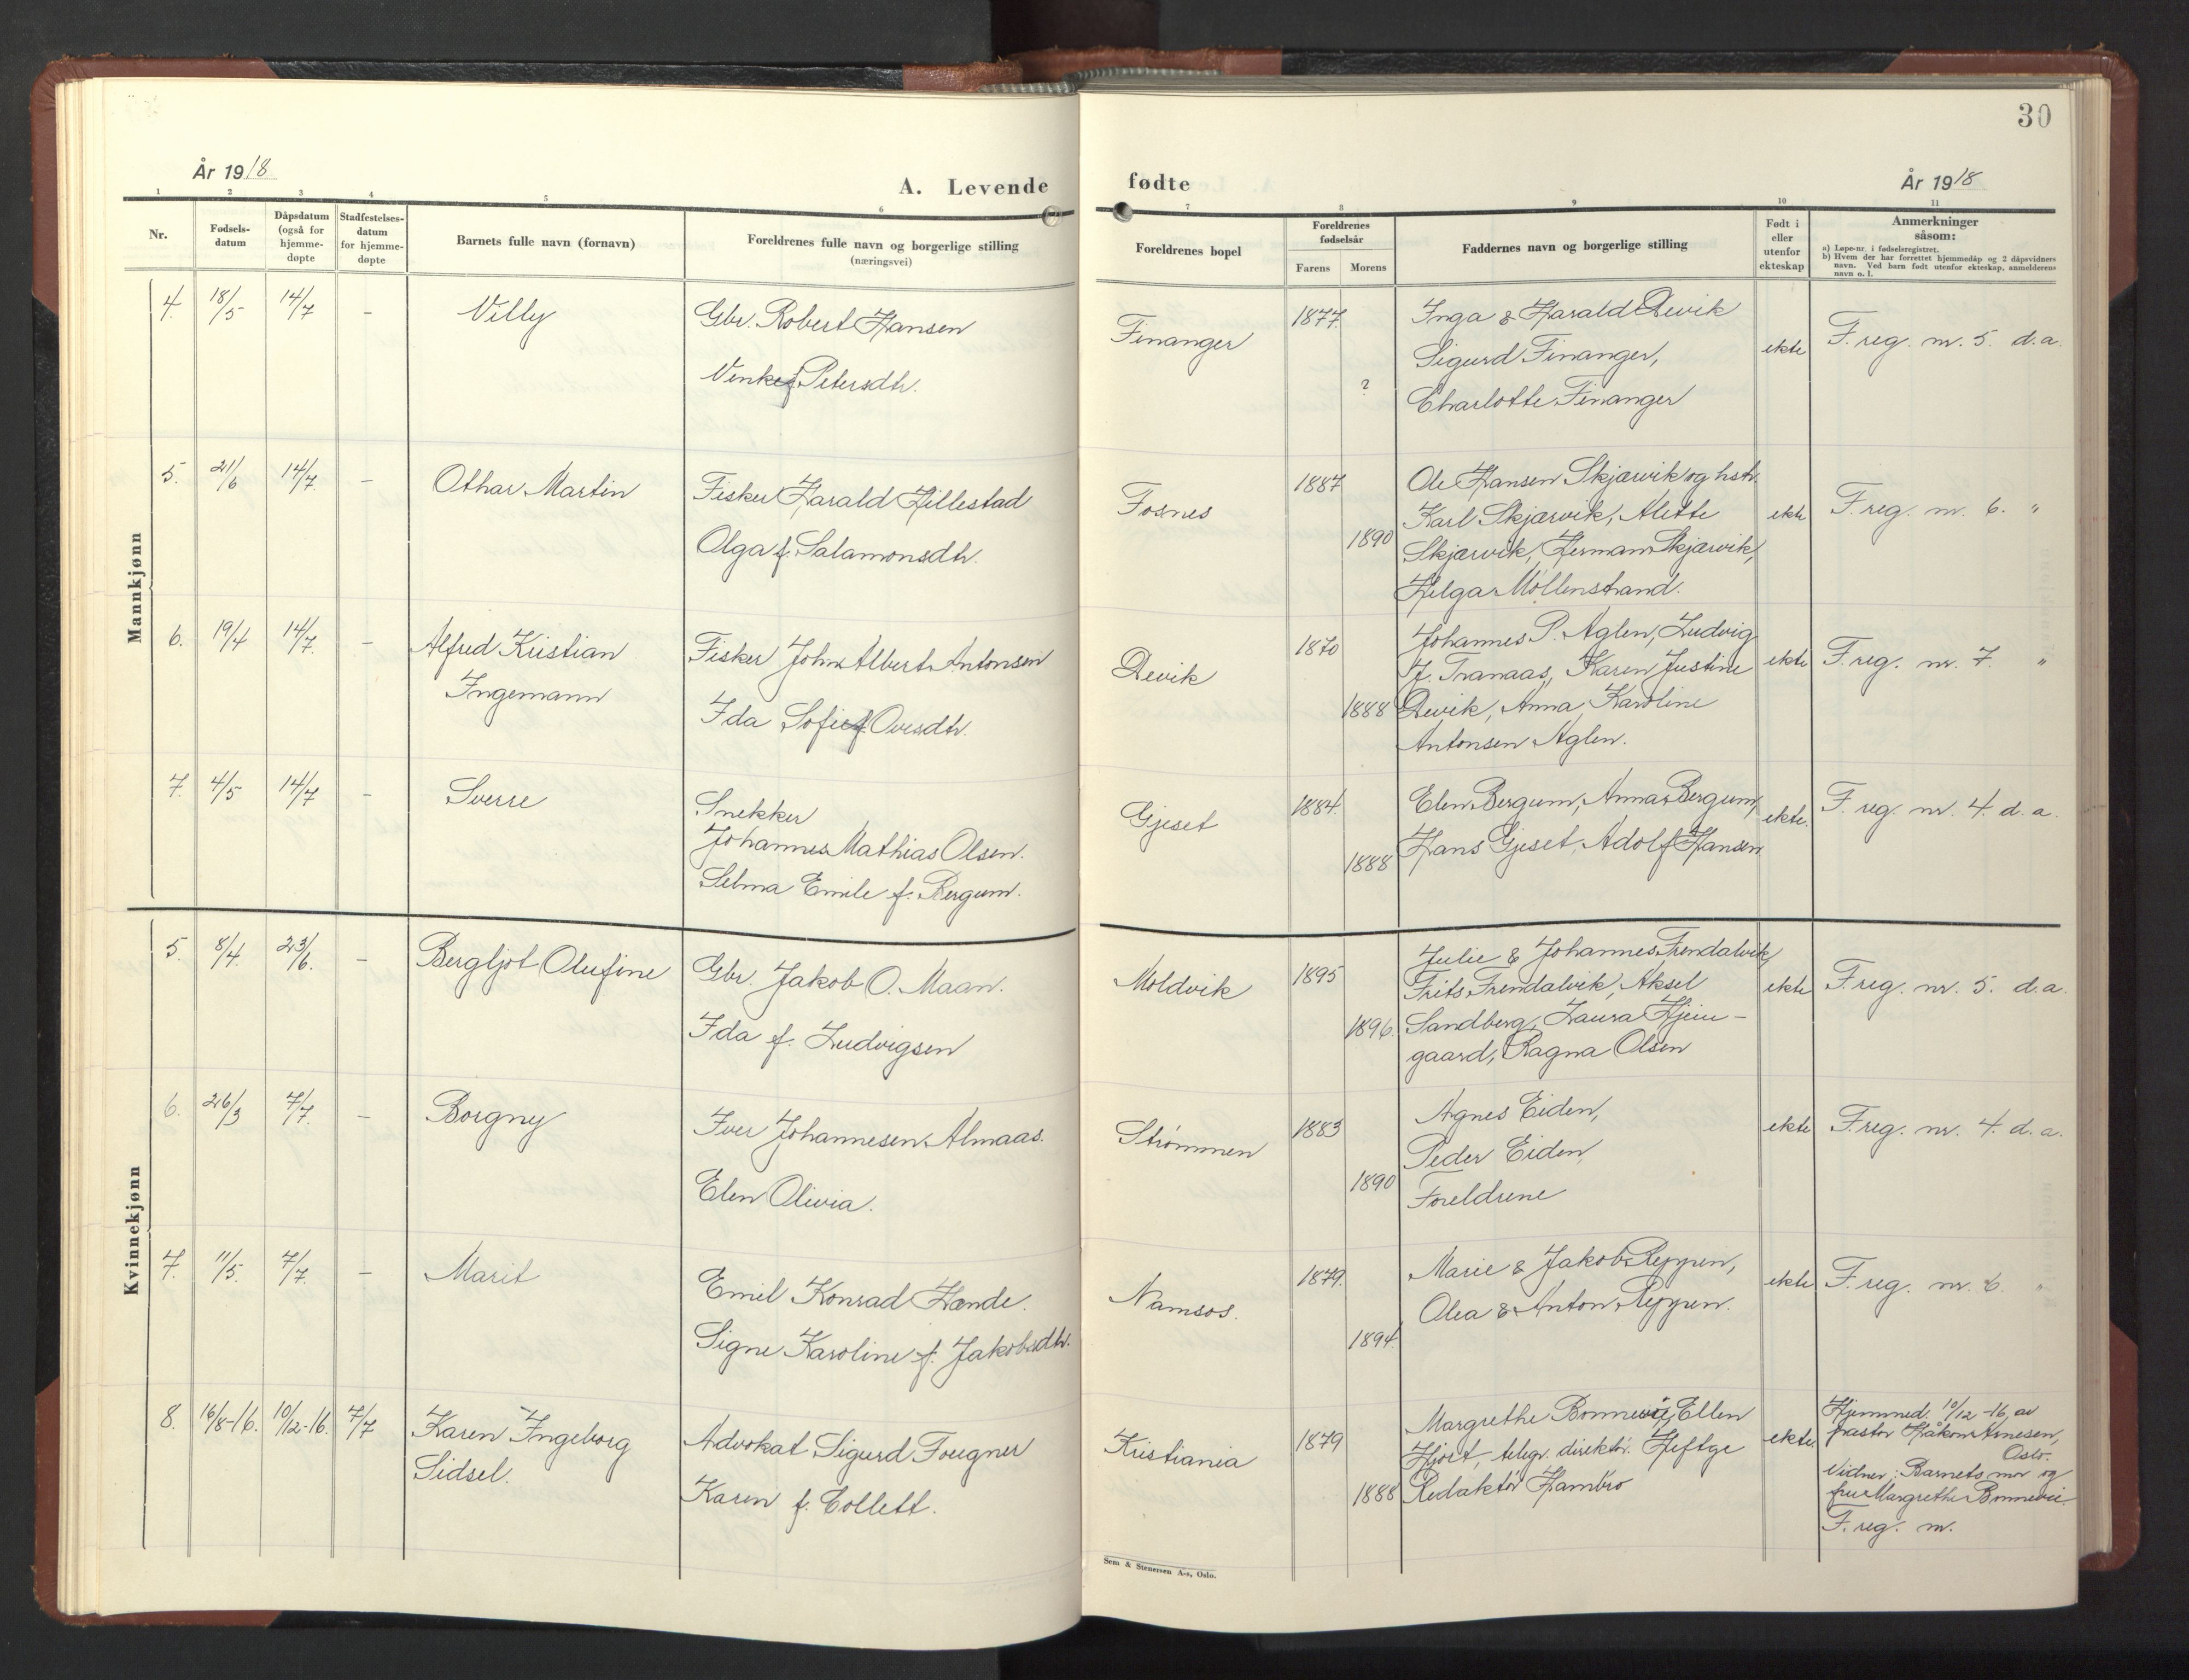 30
År 1918
A. Levende
fødte
År 1918
1 2 3 4 5 6 7 8 9 10 11
Nr.
Fødsels-
datum
Dåpsdatum
(også for
hjemme-
døpte
Stadfestelses-
datum
for hjemme-
døpte
Barnets fulle navn (fornavn)
Foreldrenes fulle navn og borgerlige stilling
(næringsvei)
Foreldrenes bopel
Foreldrenes
fødselsår
Farens Morens
Faddernes navn og borgerlige stilling
Født i
eller
utenfor
ekteskap
Anmerkninger
såsom:
a) Løpe-nr. i fødselsregistret.
b) Hvem der har forrettet hjemmedåp og 2 dåpsvidners
navn. Ved barn født utenfor ekteskap, anmelderens
navn o. l.
Mannkjønn
4. 18/5 14/7 -
Villy
Gbr. Robert Hansen
Venke f. Petersdtr.
Finanger
1877.
?
Inga & Harald Devik
Sigurd Finanger,
Charlotte Finanger
ekte
F. reg. nr. 5. d.a.
5. 21/6 14/7. -
Othar Martin
Fisker Harald Hillestad
Olga f. Salamonsdtr.
Fosnes
1887
1890
Ole Hansen Skjærvik og hstr.
Karl Skjærvik, Alette
Skjærvik, Herman Skjærvik,
Helga Møllenstrand.
ekte
F. reg. nr. 6. "
6. 19/4 14/7. -
Alfred Kristian
Ingemann
Fisker John Albert Antonsen
Ida Sofie f. Ovesdtr.
Devik
1870
1888
Johannes P. Aglen, Ludvig
J. Tranaas, Karen Justine
Devik, Anna Karoline
Antonsen Aglen.
ekte
F. reg. nr. 7. "
7. 4/5 14/7 -
Sverre
Snekker
Johannes Mathias Olsen.
Selma Emile f. Bergum.
Gjeset
1884.
1888
Elen Bergum, Anna Bergum,
Hans Gjeset, Adolf Hansen.
ekte.
F. reg. nr. 4. d.a.
Kvinnekjønn
5. 8/4. 23/6. -
Bergljot Olufine
Gbr. Jakob O. Maan.
Ida f. Ludvigsen
Moldvik
1895
1896.
Julie & Johannes Frendalvik,
Frits Frendalvik, Aksel
Sandberg, Laura Hjem-
gaard, Ragna Olsen
ekte
F. reg. nr. 5. d.a.
6. 26/3 7/7. -
Borgny
Iver Johannesen Almaas.
Elen Olivia.
Strømmen
1883
1890
Agnes Eiden,
Peder Eiden,
Foreldrene
ekte
F. reg. nr. 4. d.a.
7. 11/5. 7/7. -
Marit
Emil Konrad Hande.
Signe Karoline f. Jakobsdtr.
Namsos.
1879.
1894.
Marie & Jakob Reppen,
Olea & Anton Reppen.
ekte
F. reg. nr. 6. "
8. 16/8-16. 10/12-16. 7/7
Karen Ingeborg
Sidsel.
Advokat Sigurd Fougner
Karen f. Collett.
Kristiania
1879
1888
Margrethe Bonnevie, Ellen
Hjort, telegr. direktør. Heftye
Redaktør Hambro
ekte.
Hjemmed. 10/12-16, av
pastor Håkon Arnesen,
Oslo.
Vidner: Barnets mor og
frue Margrethe Bonnevie.
F. reg. nr.
Sem & Stenersen A-s, Oslo.